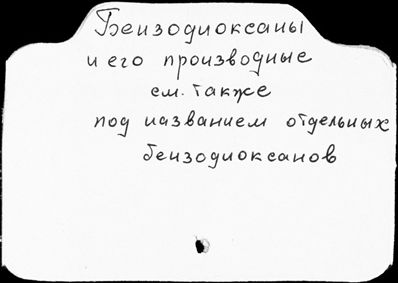 Бензодиоксаны
и его производные
см. также
под названием отдельных
бензодиоксанов